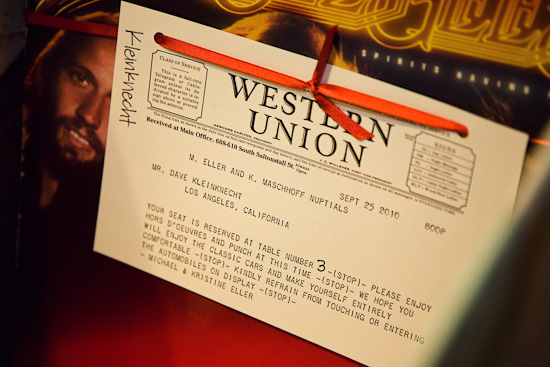 SPIRITS HAVING
Kleinknecht
CLASS OF SERVICE
This is a full-rate
Telegram or Cable-
gram unless its de-
ferred character is in-
dicated by a suitable
sign above or preced-
ing the address.
WESTERN
UNION
SIGNS
Received at Main Office, 608-610 South Saltonstall St.
M. ELLER AND K. MASCHHOFF NUPTIALS
SEPT 25 2010
800P
MR. DAVE KLEINKNECHT
LOS ANGELES, CALIFORNIA
YOUR SEAT IS RESERVED AT TABLE NUMBER 3 -(STOP)- PLEASE ENJOY
HORS D'OEUVRES AND PUNCH AT THIS TIME -(STOP)- WE HOPE YOU
WILL ENJOY THE CLASSIC CARS AND MAKE YOURSELF ENTIRELY
COMFORTABLE -(STOP)- KINDLY REFRAIN FROM TOUCHING OR ENTERING
THE AUTOMOBILES ON DISPLAY -(STOP)-
- MICHAEL & KRISTINE ELLER